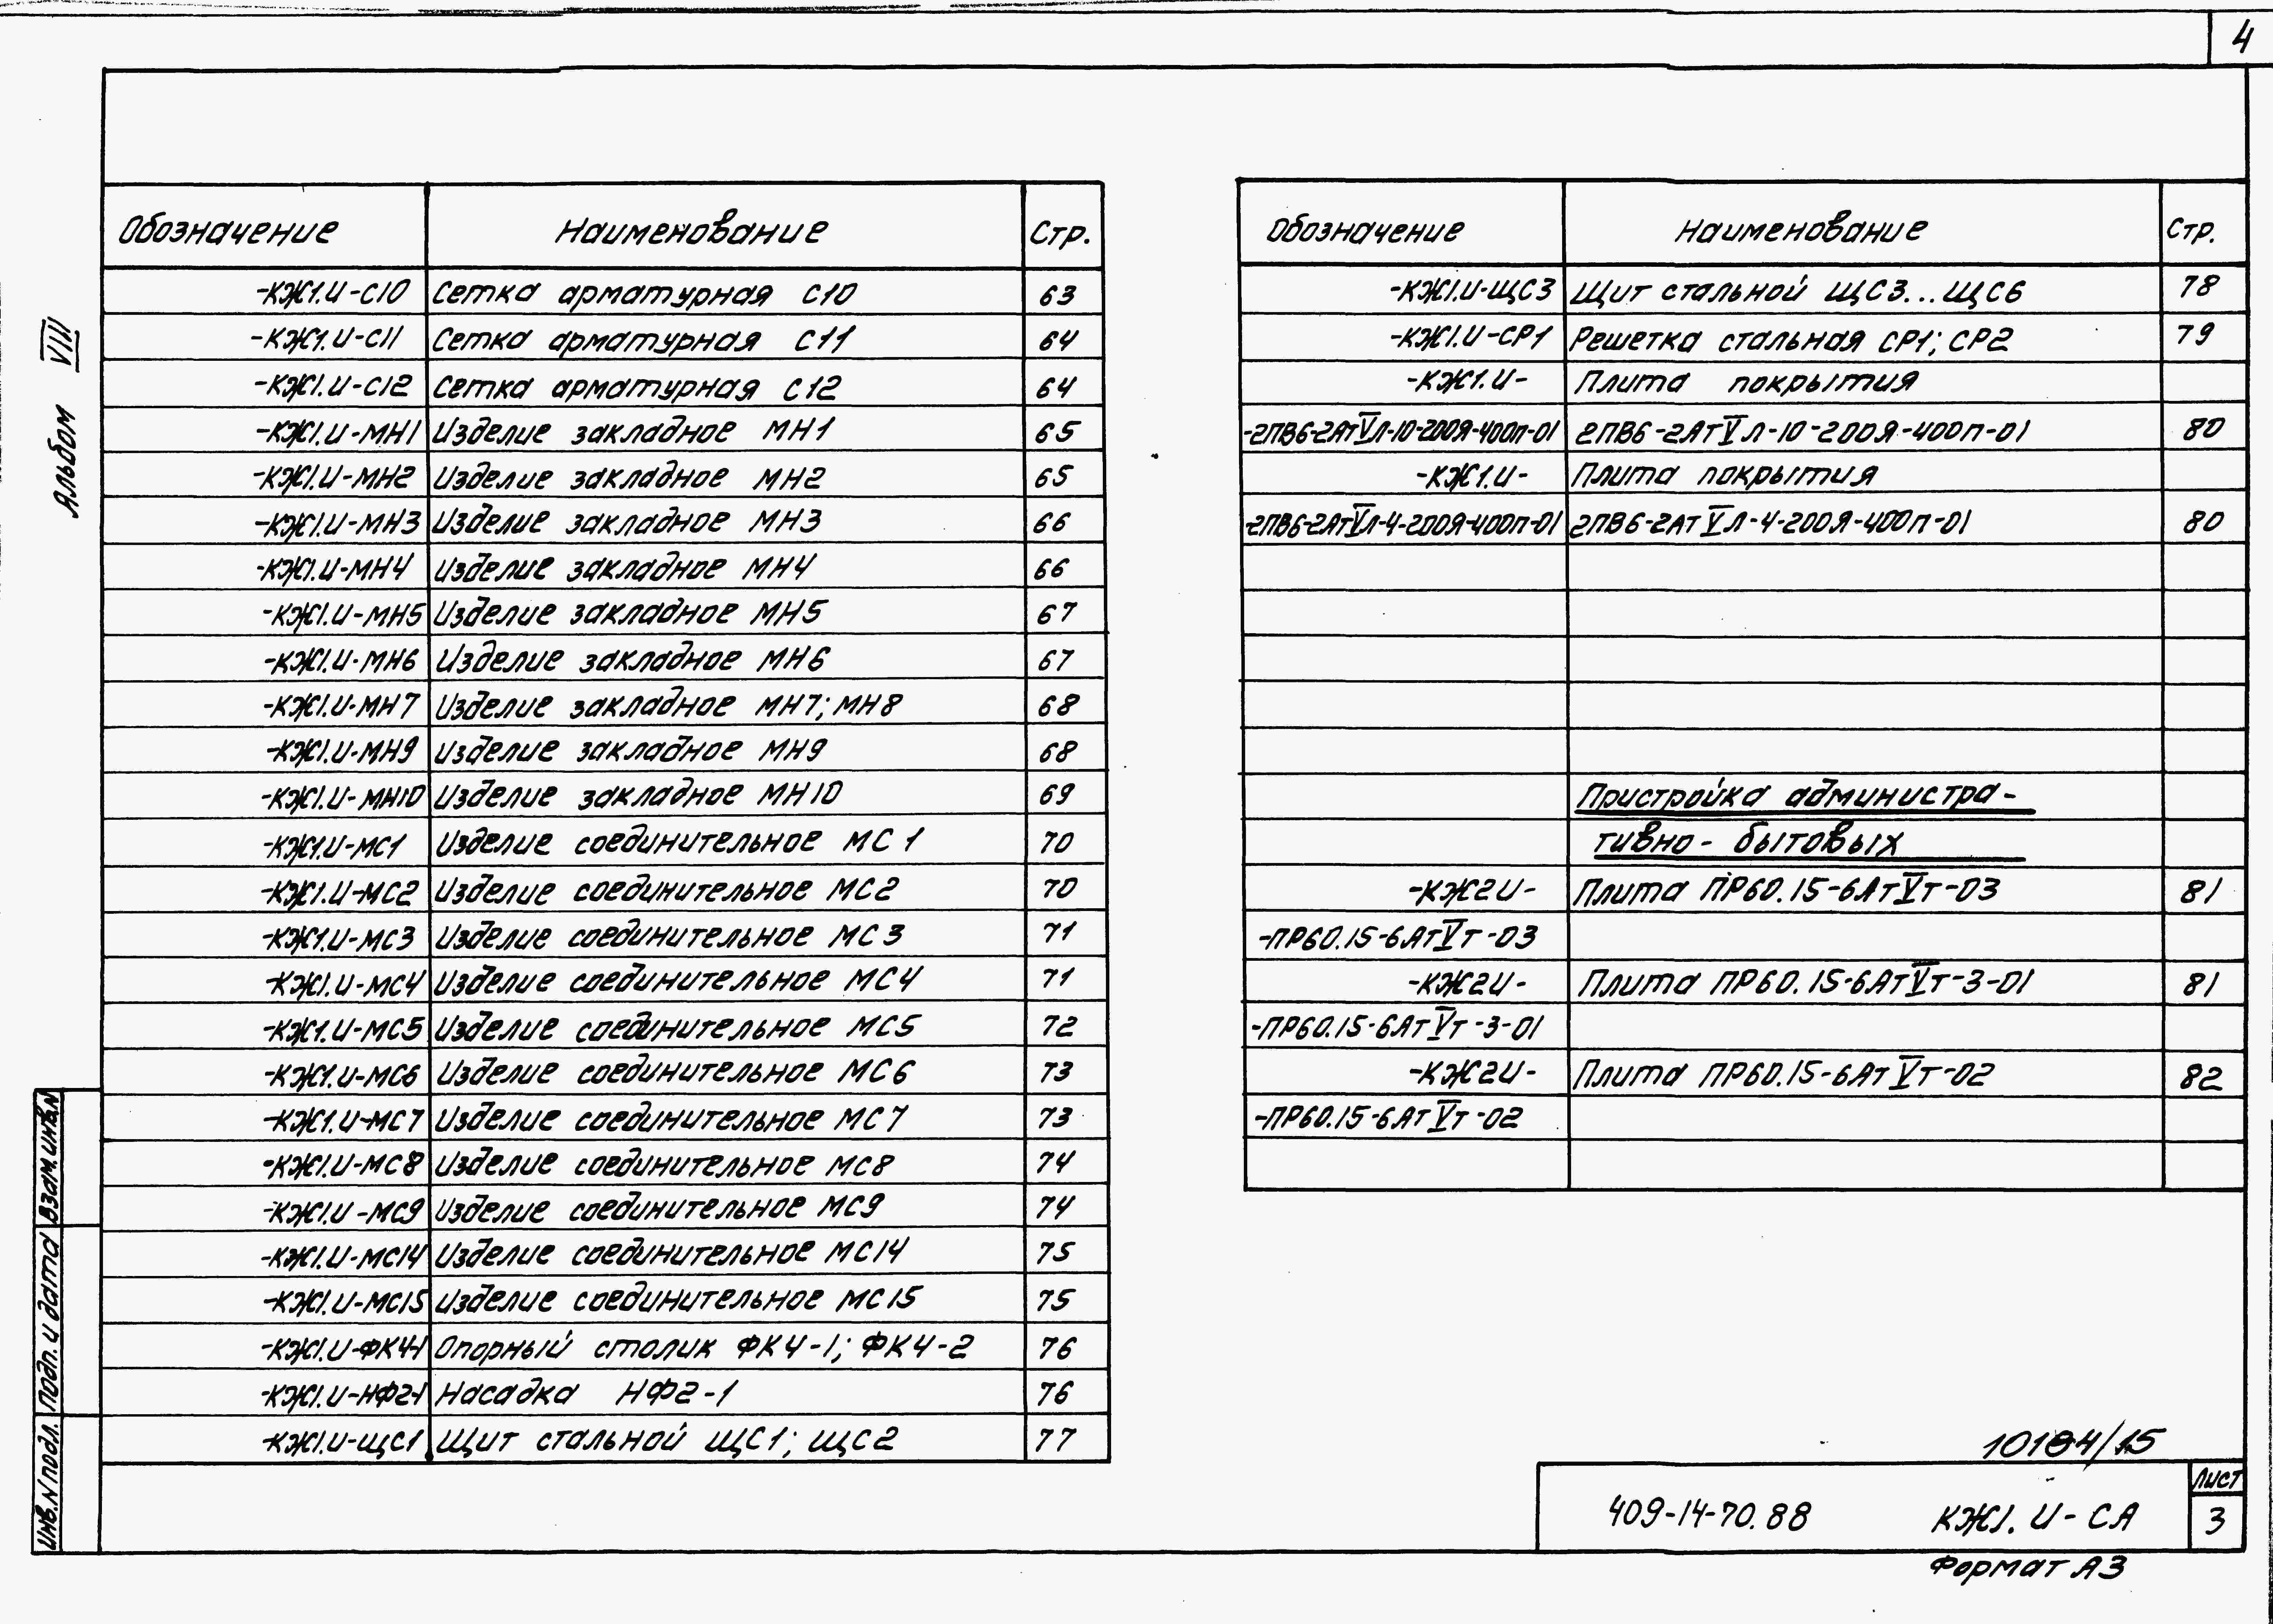 4
Альбом VIII
Обозначение Наименование Стр.
-КЖ1.И-С10 Сетка арматурная С10 63
-КЖ1.И-С11 Сетка арматурная С11 64
-КЖ1.И-С12 Сетка арматурная С12 64
-КЖ1.И-МН1 Изделие закладное МН1 65
-КЖ1.И-МН2 Изделие закладное МН2 65
-КЖ1.И-МН3 Изделие закладное МН3 66
-КЖ1.И-МН4 Изделие закладное МН4 66
-КЖ1.И-МН5 Изделие закладное МН5 67
-КЖ1.И-МН6 Изделие закладное МН6 67
-КЖ1.И-МН7 Изделие закладное МН7; МН8 68
-КЖ1.И-МН9 Изделие закладное МН9 68
-КЖ1.И-МН10 Изделие закладное МН10 69
-КЖ1.И-МС1 Изделие соединительное МС1 70
-КЖ1.И-МС2 Изделие соединительное МС2 70
-КЖ1.И-МС3 Изделие соединительное МС3 71
-КЖ1.И-МС4 Изделие соединительное МС4 71
-КЖ1.И-МС5 Изделие соединительное МС5 72
-КЖ1.И-МС6 Изделие соединительное МС6 73
-КЖ1.И-МС7 Изделие соединительное МС7 73
-КЖ1.И-МС8 Изделие соединительное МС8 74
-КЖ1.И-МС9 Изделие соединительное МС9 74
-КЖ1.И-МС14 Изделие соединительное МС14 75
-КЖ1.И-МС15 Изделие соединительное МС15 75
-КЖ1.И-ФК4-1 Опорный столик ФК4-1; ФК4-2 76
-КЖ1.И-НФ2-1 Насадка НФ2-1 76
-КЖ1.И-ЩС1 Щит стальной ЩС1; ЩС2 77
Обозначение Наименование Стр.
-КЖ1.И-ЩС3 Щит стальной ЩС3...ЩС6 78
-КЖ1.И-СР1 Решетка стальная СР1; СР2 79
-КЖ1.И- Плита покрытия
-2ПВ6-2АтVЛ-10-200Я-400п-01 2ПВ6-2АтVЛ-10-200Я-400п-01 80
-КЖ1.И- Плита покрытия
-2ПВ6-2АтVЛ-4-200Я-400п-01 2ПВ6-2АтVЛ-4-200Я-400п-01 80
Пристройка администра-
тивно-бытовых
-КЖ2И- Плита ПР60.15-6АтVт-03 81
-ПР60.15-6АтVт-03
-КЖ2И- Плита ПР60.15-6АтVт-3-01 81
-ПР60.15-6АтVт-3-01
-КЖ2И- Плита ПР60.15-6АтVт-02 82
-ПР60.15-6АтVт-02
Взам.инв.N
Подп. и дата
Инв.N подл.
409-14-70.88 КЖ1.И-СА
Лист
3
Формат А3